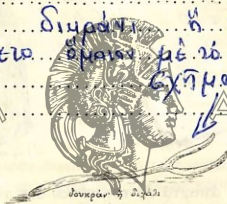 δικράνι ἢ
ὅμοιον μὲ τὸ
σχῆμα
δουκράν' ἢ διχάλι